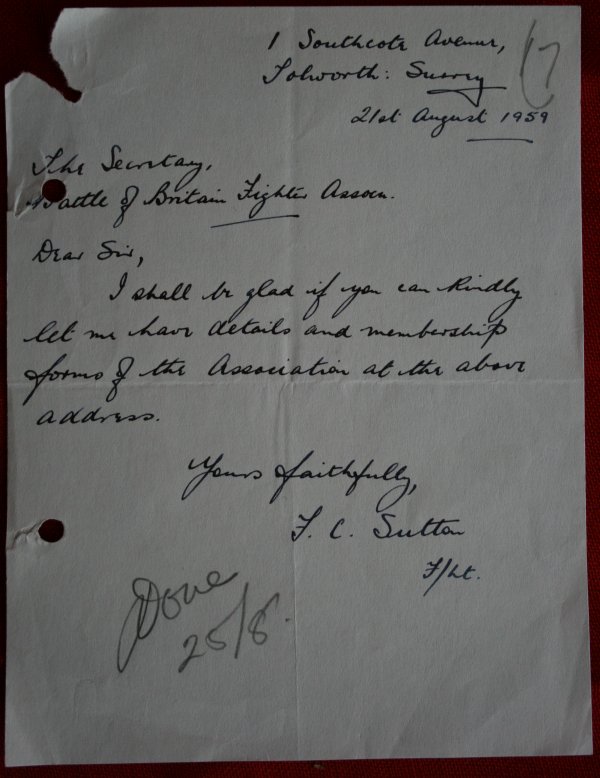 1 Southcote Avenue,
Tolworth: Surrey
21st August 1959
The Secretary,
Battle of Britain Fighter Assocn.
Dear Sir,
I shall be glad if you can kindly
let me have details and membership
forms of the Association at the above
address.
Yours faithfully,
F. C. Sutton
F/Lt.
Done
25/8.